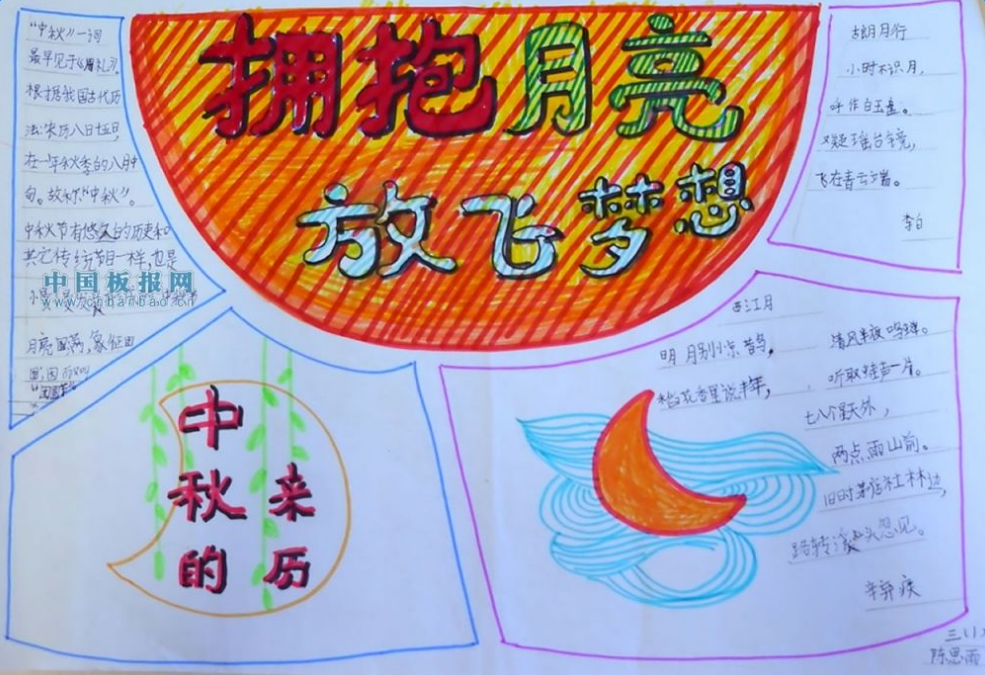 拥抱月亮
放飞梦想
"中秋"一词
最早见于《周礼》。
根据我国古代历
法:农历八日十五日,
在一年秋季的八月中
旬。故称"中秋"。
中秋节有悠久的历史和
其它传统节日一样,也是
中国板报网
月亮圆满,象征团
古朗月行
小时不识月,
呼作白玉盘。
又疑瑶台镜,
飞在青云端。
李白
中秋的
来历
西江月
明月别惊鹊,
清风半夜鸣蝉。
稻花香里说丰年,
听取蛙声一片。
七八个星天外,
两点雨山前。
旧时茅店社林边,
路转溪头忽见。
辛弃疾
陈思雨